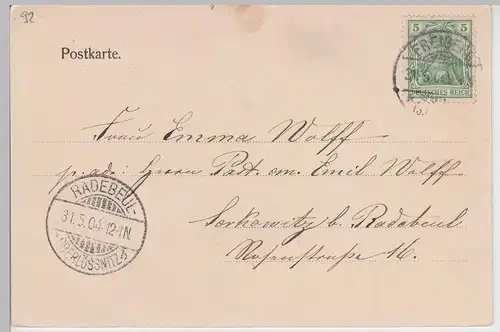 92
5 5
DEUTSCHES REICH
31.5.
Postkarte.
Frau Emma Wolff
p. adr. Herrn Padt. em. Emil Wolff
Serkowitz b. Radebeul
Rosenstraße 16.
RADEBEUL-
31.5.04.12-1N.
OBERLÖSSNITZ